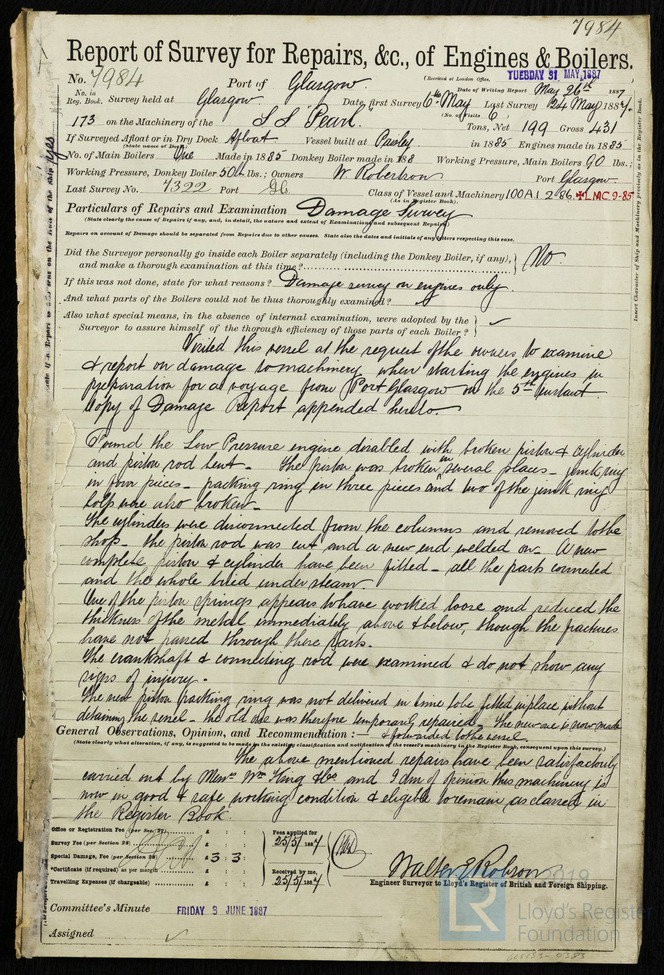 7984
Report of Survey for Repairs, &c., of Engines & Boilers.
(Received at London Office, TUESDAY 31 MAY 1887
No. 7984 Port of Glasgow. Date of Writing Report May 26th 1887
No. in Reg. Book. Survey held at Glasgow Date, first Survey 6th May Last Survey 24 May 1887.
(No. of Visits 6)
173 on the Machinery of the S S Pearl. Tons, Net 199 Gross 431
If Surveyed Afloat or in Dry Dock Afloat Vessel built at Paisley in 1885 Engines made in 1885
(State name of Dock)
No. of Main Boilers One Made in 1885 Donkey Boiler made in 188 Working Pressure, Main Boilers 90 lbs.;
Working Pressure, Donkey Boiler 50 lbs.; Owners W Robertson Port Glasgow
Last Survey No. 7322 Port Gls Class of Vessel and Machinery 100A1 2.86. LMC.9-85
(As in Register Book).
Particulars of Repairs and Examination Damage Survey
(State clearly the cause of Repairs if any, and, in detail, the nature and extent of Examinations and subsequent Repairs)
Repairs on account of Damage should be separated from Repairs due to other causes. State also the dates and initials of any letters respecting this case.
Did the Surveyor personally go inside each Boiler separately (including the Donkey Boiler, if any), and make a thorough examination at this time? No
If this was not done, state for what reasons? Damage survey on engines only
And what parts of the Boilers could not be thus thoroughly examined?
Also what special means, in the absence of internal examination, were adopted by the
Surveyor to assure himself of the thorough efficiency of those parts of each Boiler? ✓
Visited this vessel at the request of the owners to examine
& report on damage to machinery when starting the engines in
preparation for a voyage from Port Glasgow on the 5th instant
Copy of Damage Report appended hereto
Found the Low Pressure engine disabled with broken piston & cylinder
and piston rod bent. The piston was broken in several places - junk ring
in four pieces - packing ring in three pieces and two of the junk ring
bolts were also broken.
The cylinders were disconnected from the columns and removed to the
shop - the piston rod was cut and a new end welded on. A new
complete piston & cylinder have been fitted - all the parts connected
and the whole tried under steam.
One of the piston springs appears to have worked loose and reduced the
thickness of the metal immediately above & below, though the fractures
have not passed through these parts.
The crankshaft & connecting rod were examined & do not show any
signs of injury.
The new piston packing ring was not delivered in time to be fitted in place without
detaining the vessel - the old one was therefore temporarily repaired. The new one is now made
General Observations, Opinion, and Recommendation :— & forwarded to the vessel
(State clearly what alteration, if any, is suggested to be made in the existing classification and notification of the vessel's machinery in the Register Book, consequent upon this survey.)
The above mentioned repairs have been satisfactorily
carried out by Messrs Wm King & Co and I am of opinion this machinery is
now in good & safe working condition & eligible to remain as classed in
the Register Book
Office or Registration Fee (per Sec. 27) £ : :
Fees applied for
Survey Fee (per Section 28) £ : :
25/5/1887
Special Damage, Fee (per Section 28) £ 3 : 3 :
*Certificate (if required) as per margin £ : :
Received by me,
Travelling Expenses (if chargeable) £ : :
25/5/1887
Walter E Robson
Engineer Surveyor to Lloyd's Register of British and Foreign Shipping.
Committee's Minute FRIDAY 3 JUNE 1887
Assigned ✓
2019
LR
Lloyd's Register
Foundation
Insert Character of Ship and Machinery precisely as in the Register Book.